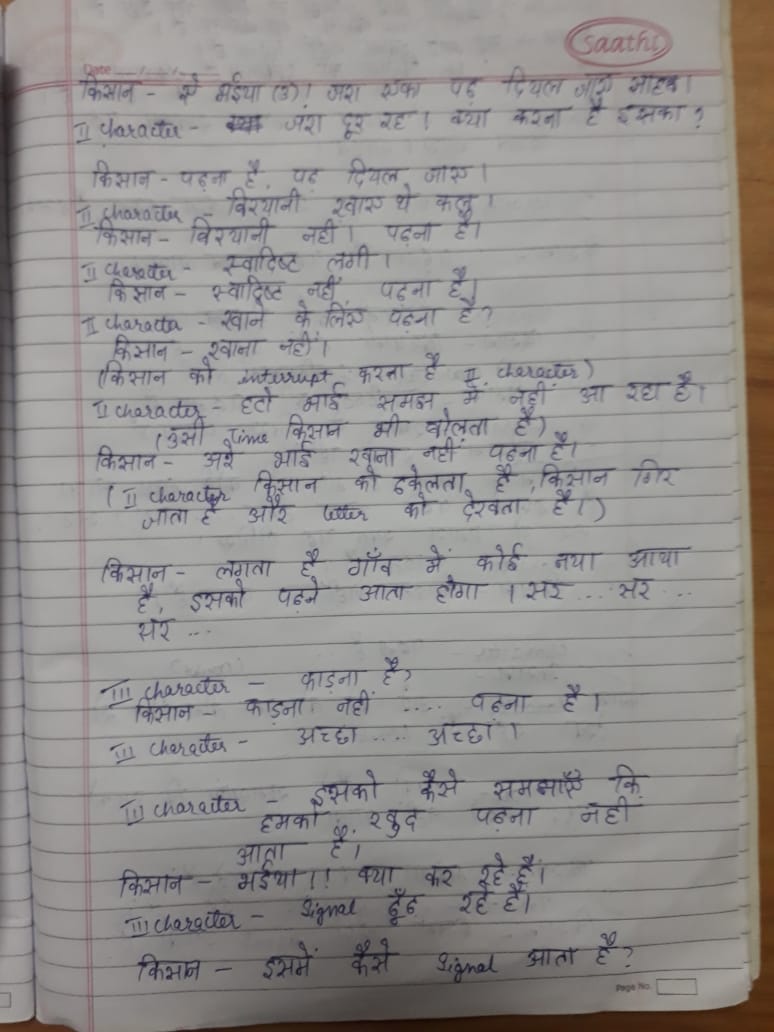 Saathi
Date
किसान - ऐ भईया (3)। जरा रुका पढ़ दियल जाए
II character - जरा दूर रह। क्या करना है इसका?
किसान - पढ़ना है, पढ़ दियल जाए।
II character - बिरयानी खाए थे कलू।
किसान - बिरयानी नहीं। पढ़ना है।
II character - स्वादिष्ट लगी।
किसान - स्वादिष्ट नहीं पढ़ना है।
II character - खाने के लिए पढ़ना है?
किसान - खाना नहीं।
(किसान को interrupt करना है II character)
II character - हटो भाई समझ में नहीं आ रहा है।
(उसी Time किसान भी बोलता है)
किसान - अरे भाई खाना नहीं पढ़ना है।
(II character किसान को ढकेलता है, किसान गिर
जाता है और letter को देखता है।)
किसान - लगता है गाँव में कोई नया आया
है, इसको पढ़ने आता होगा। सर ... सर ...
सर ...
III character - काड़ना है?
किसान - काड़ना नहीं .... पढ़ना है।
III character - अच्छा .... अच्छा।
III character - इसको कैसे समझाएँ कि
हमको खुद पढ़ना नहीं
आता है।
किसान - भईया!! क्या कर रहे हैं।
III character - Signal ढूँढ रहे हैं।
किसान - इसमें कैसे Signal आता है?
Page No.